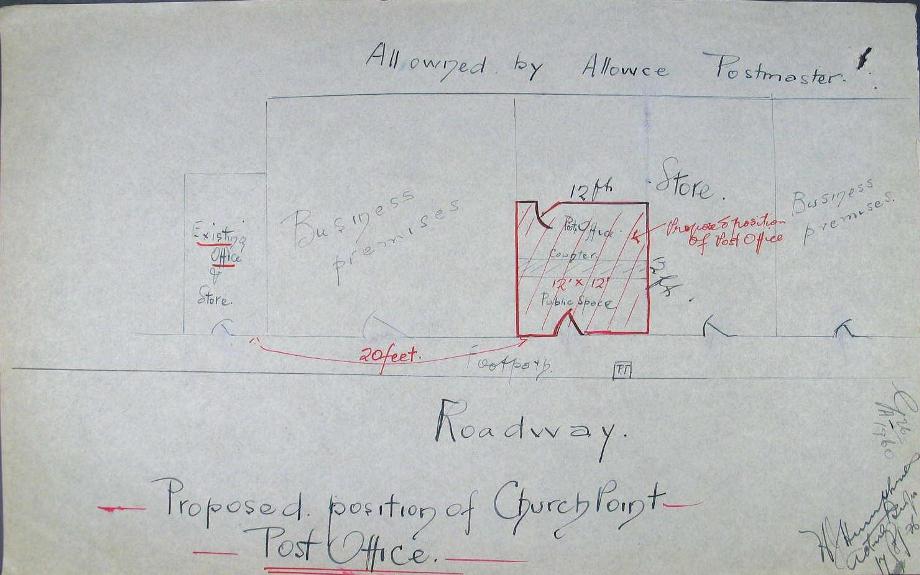 All owned by Allowce Postmaster.
Existing
Office
&
Store.
Business
premises
12 ft
Post Office
Counter
12' x 12'
Public Space
12 ft.
Store.
Propose position
of Post Office
Business
premises.
20 feet.
Footpath
Roadway.
Proposed position of Church Point
Post Office.